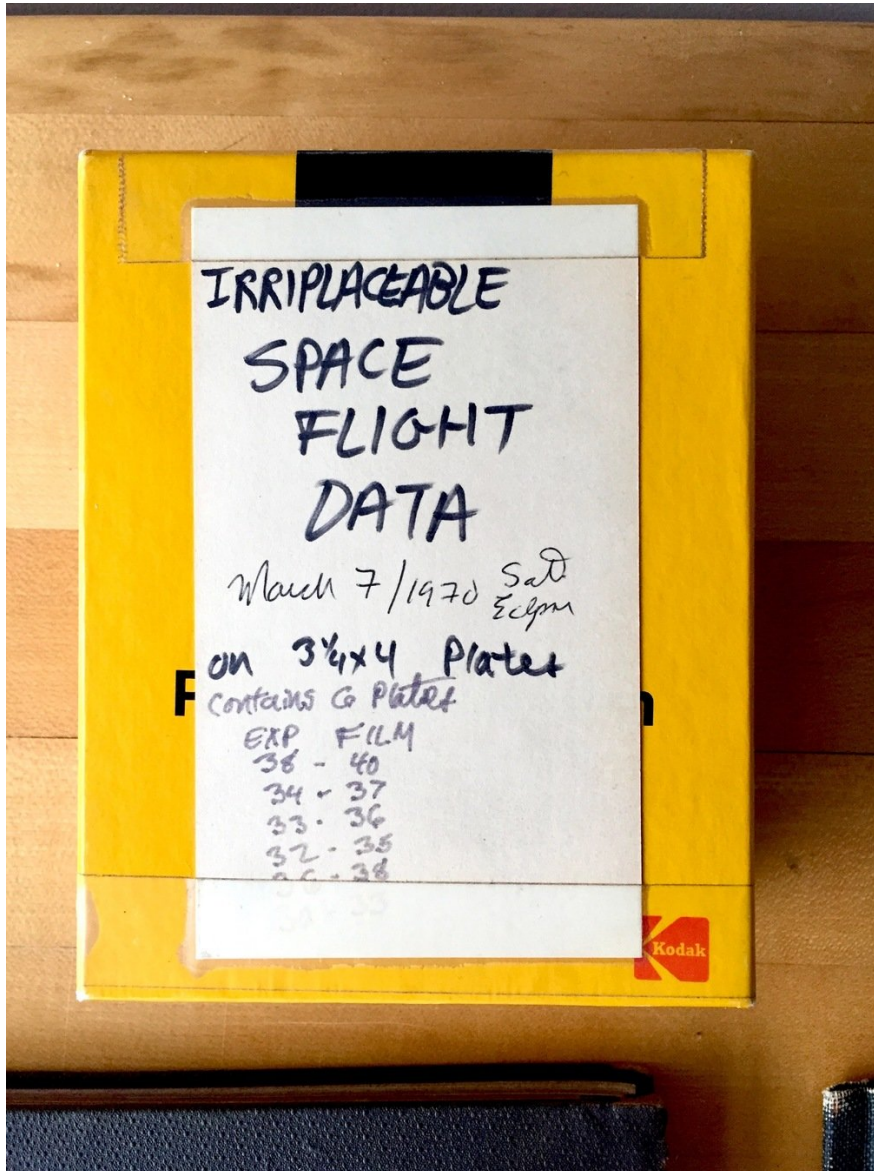 IRRIPLACEABLE
SPACE
FLIGHT
DATA
March 7/1970 Sat
Eclpse
on 3¼x4 Plates
Contains 6 Plates
EXP FILM
38 - 40
34 - 37
33 - 36
32 - 35
36 - 38
Kodak